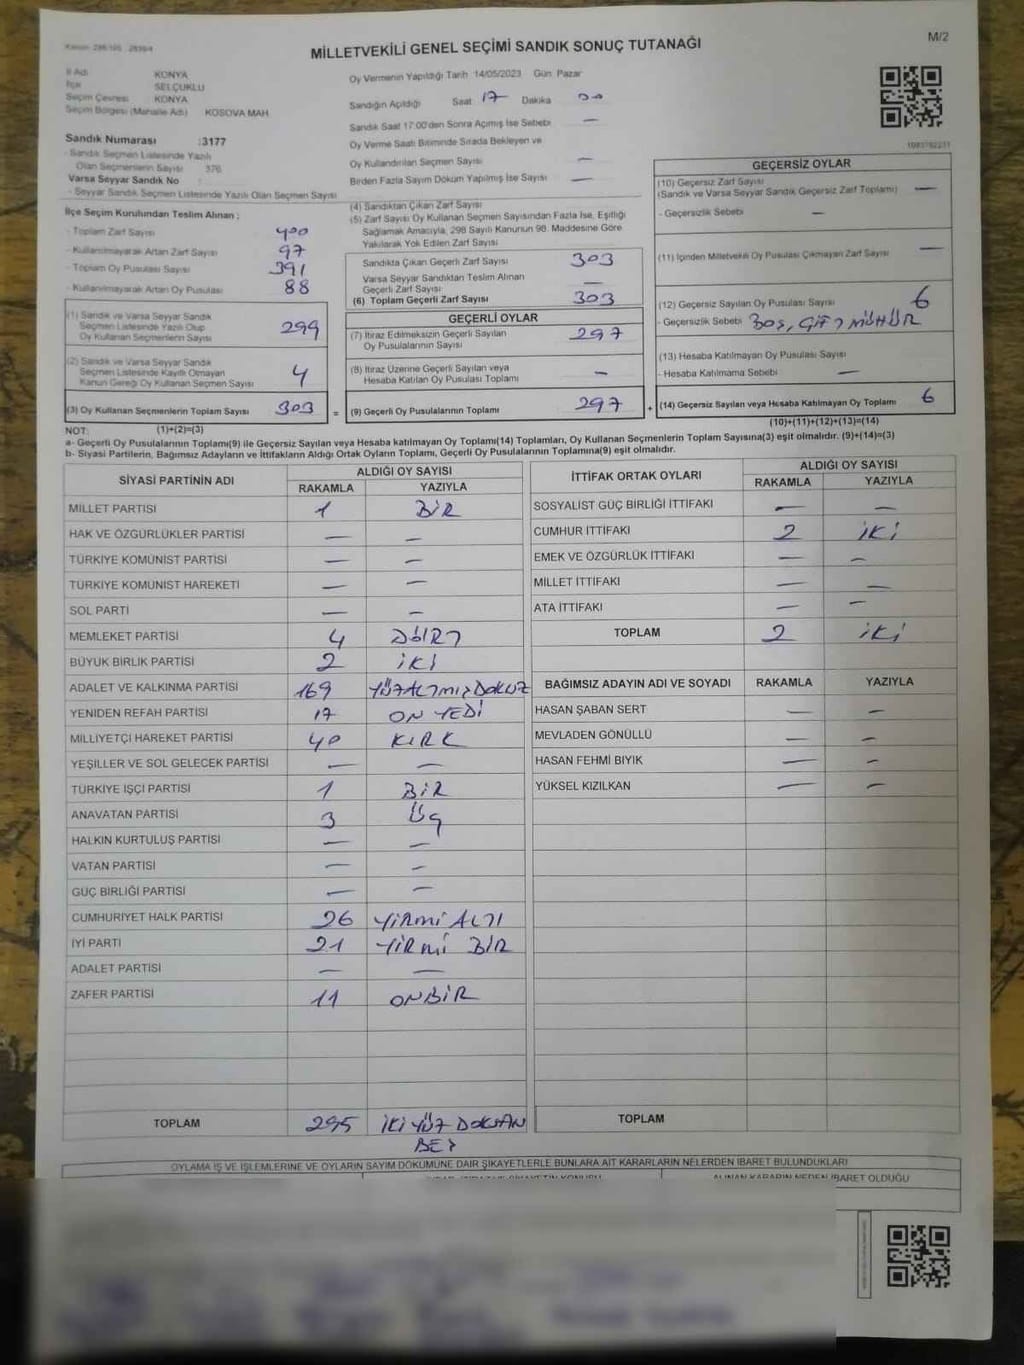 Kanun: 298/105 2839/4
MİLLETVEKİLİ GENEL SEÇİMİ SANDIK SONUÇ TUTANAĞI
M/2
İl Adı KONYA
İlçe SELÇUKLU
Seçim Çevresi KONYA
Seçim Bölgesi (Mahalle Adı) KOSOVA MAH
Sandık Numarası :3177
- Sandık Seçmen Listesinde Yazılı
Olan Seçmenlerin Sayısı 376
Varsa Seyyar Sandık No
- Seyyar Sandık Seçmen Listesinde Yazılı Olan Seçmen Sayısı
Oy Vermenin Yapıldığı Tarih 14/05/2023 Gün Pazar
Sandığın Açıldığı Saat 17 Dakika 00
Sandık Saat 17:00'den Sonra Açılmış İse Sebebi —
Oy Verme Saati Bitiminde Sırada Bekleyen ve
Oy Kullandırılan Seçmen Sayısı —
Birden Fazla Sayım Döküm Yapılmış İse Sayısı —
İlçe Seçim Kurulundan Teslim Alınan ;
- Toplam Zarf Sayısı 400
- Kullanılmayarak Artan Zarf Sayısı 97
- Toplam Oy Pusulası Sayısı 391
- Kullanılmayarak Artan Oy Pusulası 88
(1) Sandık ve Varsa Seyyar Sandık
Seçmen Listesinde Yazılı Olup
Oy Kullanan Seçmenlerin Sayısı 299
(2) Sandık ve Varsa Seyyar Sandık
Seçmen Listesinde Kayıtlı Olmayan
Kanun Gereği Oy Kullanan Seçmen Sayısı 4
(3) Oy Kullanan Seçmenlerin Toplam Sayısı 303
(4) Sandıktan Çıkan Zarf Sayısı
(5) Zarf Sayısı Oy Kullanan Seçmen Sayısından Fazla İse, Eşitliği
Sağlamak Amacıyla, 298 Sayılı Kanunun 98. Maddesine Göre
Yakılarak Yok Edilen Zarf Sayısı
Sandıkta Çıkan Geçerli Zarf Sayısı 303
Varsa Seyyar Sandıktan Teslim Alınan
Geçerli Zarf Sayısı —
(6) Toplam Geçerli Zarf Sayısı 303
GEÇERLİ OYLAR
(7) İtiraz Edilmeksizin Geçerli Sayılan
Oy Pusulalarının Sayısı 297
(8) İtiraz Üzerine Geçerli Sayılan veya
Hesaba Katılan Oy Pusulası Toplamı —
= (9) Geçerli Oy Pusulalarının Toplamı 297
GEÇERSİZ OYLAR
(10) Geçersiz Zarf Sayısı
(Sandık ve Varsa Seyyar Sandık Geçersiz Zarf Toplamı) —
- Geçersizlik Sebebi —
(11) İçinden Milletvekili Oy Pusulası Çıkmayan Zarf Sayısı —
(12) Geçersiz Sayılan Oy Pusulası Sayısı 6
- Geçersizlik Sebebi BOŞ, ÇİFT MÜHÜR
(13) Hesaba Katılmayan Oy Pusulası Sayısı
- Hesaba Katılmama Sebebi —
+ (14) Geçersiz Sayılan veya Hesaba Katılmayan Oy Toplamı 6
NOT: (1)+(2)=(3) (10)+(11)+(12)+(13)=(14)
a- Geçerli Oy Pusulalarının Toplamı(9) ile Geçersiz Sayılan veya Hesaba katılmayan Oy Toplamı(14) Toplamları, Oy Kullanan Seçmenlerin Toplam Sayısına(3) eşit olmalıdır. (9)+(14)=(3)
b- Siyasi Partilerin, Bağımsız Adayların ve İttifakların Aldığı Ortak Oyların Toplamı, Geçerli Oy Pusulalarının Toplamına(9) eşit olmalıdır.
SİYASİ PARTİNİN ADI ALDIĞI OY SAYISI
RAKAMLA YAZIYLA
MİLLET PARTİSİ 1 BİR
HAK VE ÖZGÜRLÜKLER PARTİSİ — —
TÜRKİYE KOMÜNİST PARTİSİ — —
TÜRKİYE KOMÜNİST HAREKETİ — —
SOL PARTİ — —
MEMLEKET PARTİSİ 4 DÖRT
BÜYÜK BİRLİK PARTİSİ 2 İKİ
ADALET VE KALKINMA PARTİSİ 169 YÜZALTMIŞDOKUZ
YENİDEN REFAH PARTİSİ 17 ON YEDİ
MİLLİYETÇİ HAREKET PARTİSİ 40 KIRK
YEŞİLLER VE SOL GELECEK PARTİSİ — —
TÜRKİYE İŞÇİ PARTİSİ 1 BİR
ANAVATAN PARTİSİ 3 ÜÇ
HALKIN KURTULUŞ PARTİSİ — —
VATAN PARTİSİ — —
GÜÇ BİRLİĞİ PARTİSİ — —
CUMHURİYET HALK PARTİSİ 26 YİRMİ ALTI
İYİ PARTİ 21 YİRMİ BİR
ADALET PARTİSİ — —
ZAFER PARTİSİ 11 ONBİR
TOPLAM 295 İKİ YÜZ DOKSAN
BEŞ
İTTİFAK ORTAK OYLARI ALDIĞI OY SAYISI
RAKAMLA YAZIYLA
SOSYALİST GÜÇ BİRLİĞİ İTTİFAKI — —
CUMHUR İTTİFAKI 2 İKİ
EMEK VE ÖZGÜRLÜK İTTİFAKI — —
MİLLET İTTİFAKI — —
ATA İTTİFAKI — —
TOPLAM 2 İKİ
BAĞIMSIZ ADAYIN ADI VE SOYADI RAKAMLA YAZIYLA
HASAN ŞABAN SERT — —
MEVLADEN GÖNÜLLÜ — —
HASAN FEHMİ BIYIK — —
YÜKSEL KIZILKAN — —
TOPLAM
OYLAMA İŞ VE İŞLEMLERİNE VE OYLARIN SAYIM DÖKÜMÜNE DAİR ŞİKAYETLERLE BUNLARA AİT KARARLARIN NELERDEN İBARET BULUNDUKLARI
ALINAN KARARIN NEDEN İBARET OLDUĞU